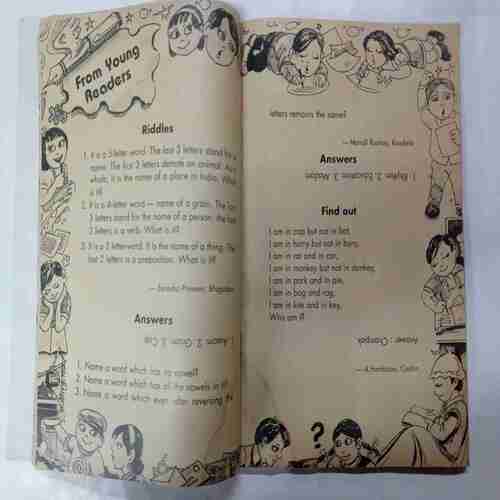 From Young
Readers
Riddles
1. It is a 5-letter word. The last 3 letters stand for a
name. The first 2 letters denote an animal. As a
whole, it is the name of a place in India. What
is it?
2. It is a 4-letter word — name of a grain. The first
3 letters stand for the name of a person; the last
3 letters is a verb. What is it?
3. It is a 3 letterword. It is the name of a thing. The
last 2 letters is a preposition. What is it?
Answers
1. Name a word which has no vowel?
2. Name a word which has all the vowels in it?
3. Name a word which even after reversing the
letters remains the same?
Answers
1. Rhythm 2. Education 3. Madam
Find out
I am in cap but not in bat,
I am in hurry but not in bury,
I am in rat and in car,
I am in monkey but not in donkey,
I am in park and in pie,
I am in bag and rag,
I am in kite and in key,
Who am I?
Answer : Champak
?